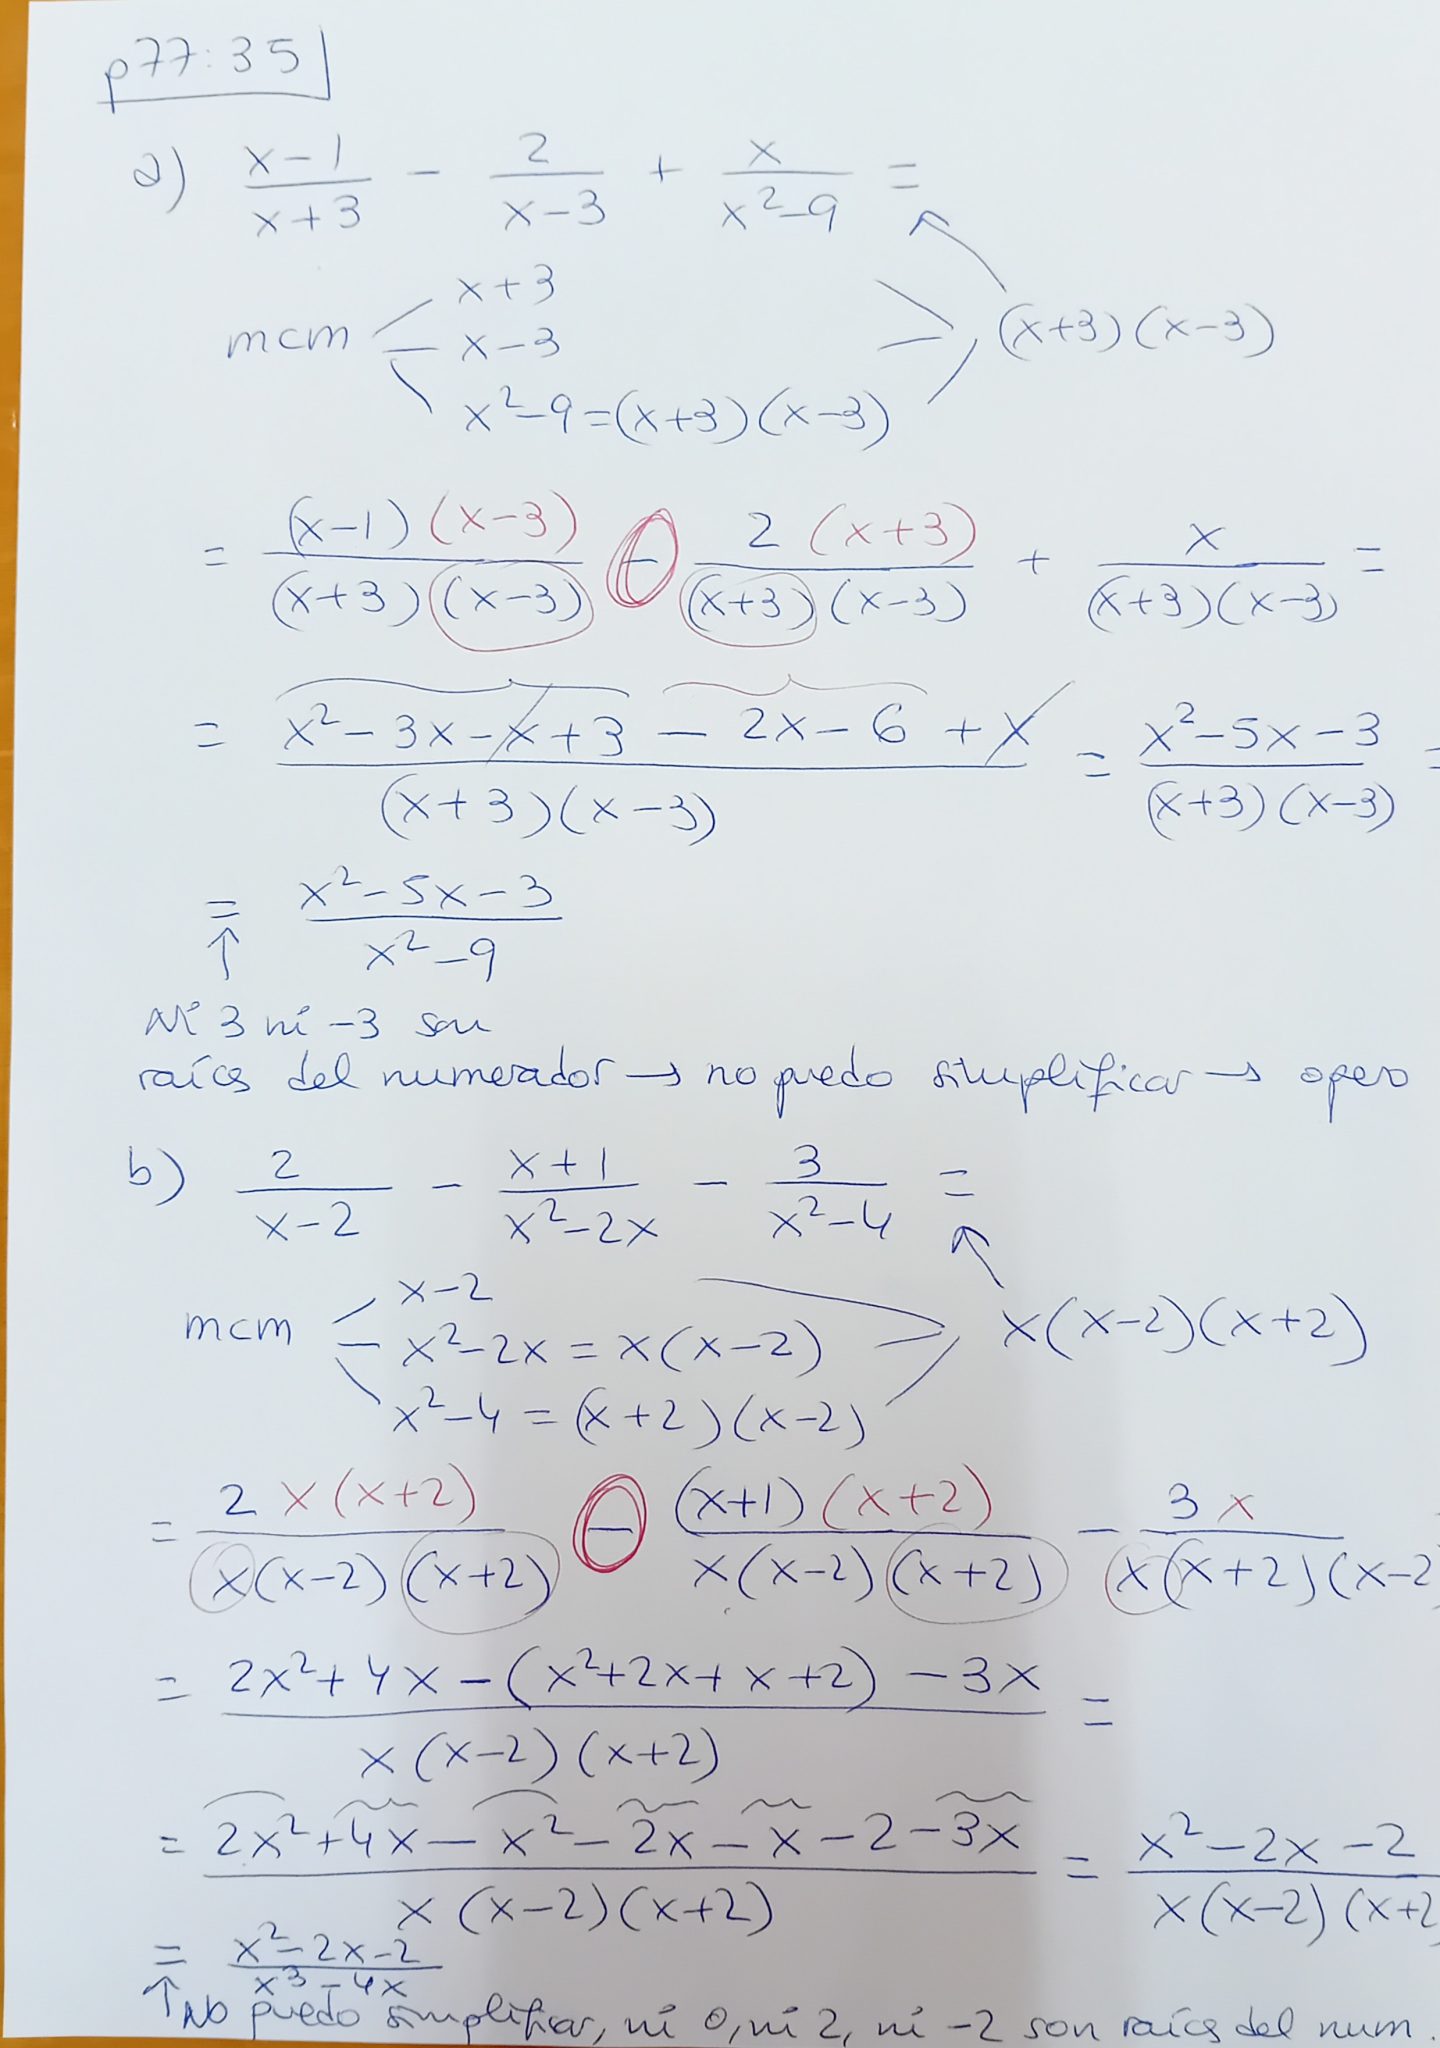 p77:35
a) (x-1)/(x+3) - 2/(x-3) + x/(x²-9) =
x+3
mcm x-3 (x+3)(x-3)
x²-9=(x+3)(x-3)
= (x-1)(x-3)/((x+3)(x-3)) - 2(x+3)/((x+3)(x-3)) + x/((x+3)(x-3)) =
= (x²-3x-x+3-2x-6+x)/((x+3)(x-3)) = (x²-5x-3)/((x+3)(x-3)) =
= (x²-5x-3)/(x²-9)
↑
Ni 3 ni -3 son
raíces del numerador → no puedo simplificar → opero
b) 2/(x-2) - (x+1)/(x²-2x) - 3/(x²-4) =
x-2
mcm x²-2x = x(x-2) x(x-2)(x+2)
x²-4 = (x+2)(x-2)
= 2x(x+2)/(x(x-2)(x+2)) - (x+1)(x+2)/(x(x-2)(x+2)) - 3x/(x(x+2)(x-2
= (2x²+4x-(x²+2x+x+2)-3x)/(x(x-2)(x+2)) =
= (2x²+4x-x²-2x-x-2-3x)/(x(x-2)(x+2)) = (x²-2x-2)/(x(x-2)(x+2
= (x²-2x-2)/(x³-4x)
↑ No puedo simplificar, ni 0, ni 2, ni -2 son raíces del num.